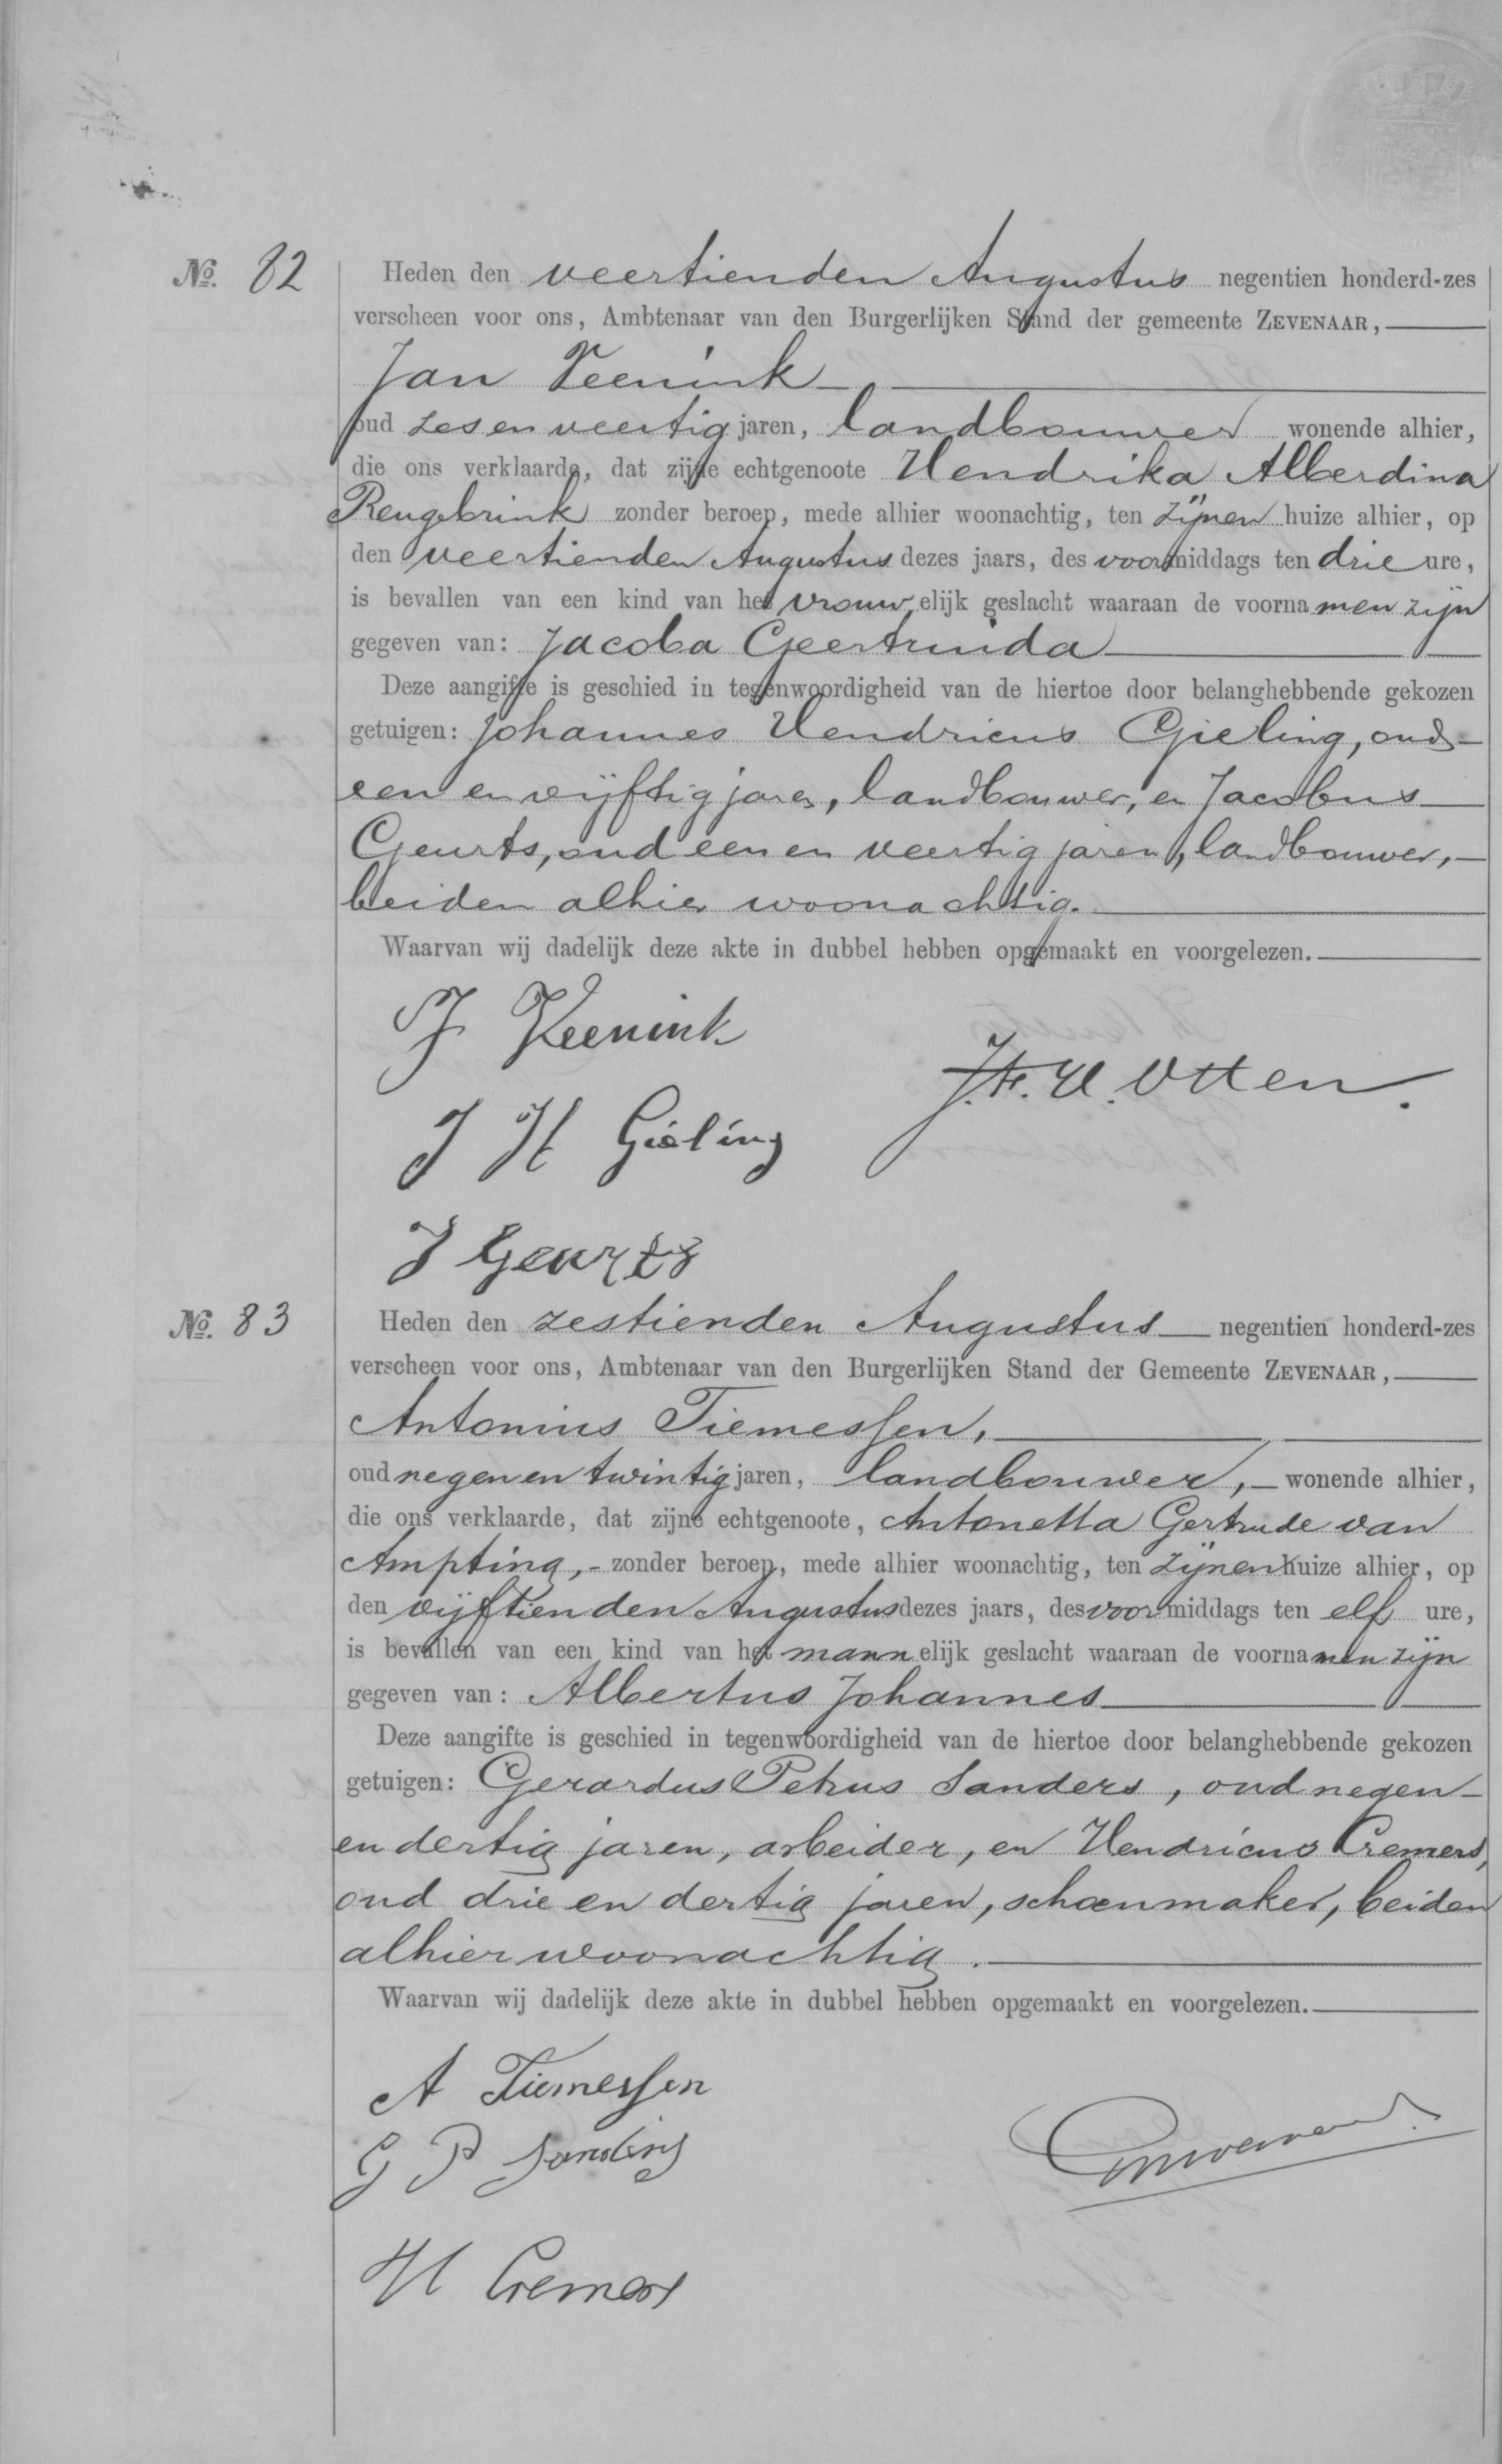 No. 82
Heden den veertienden Augustus negentien honderd-zes
verscheen voor ons, Ambtenaar van den Burgerlijken Stand der gemeente ZEVENAAR,
Jan Veenink
oud zes en veertig jaren, landbouwer wonende alhier,
die ons verklaarde, dat zijne echtgenoote Hendrika Alberdina
Rengebrink zonder beroep, mede alhier woonachtig, ten zijnen huize alhier, op
den veertienden Augustus dezes jaars, des voormiddags ten drie ure,
is bevallen van een kind van het vrouwelijk geslacht waaraan de voornamen zijn
gegeven van: Jacoba Geertruida
Deze aangifte is geschied in tegenwoordigheid van de hiertoe door belanghebbende gekozen
getuigen: Johannes Hendricus Gieling, oud
een en vijftig jaren, landbouwer, en Jacobus
Geurts, oud een en veertig jaren, landbouwer,
beiden alhier woonachtig.
Waarvan wij dadelijk deze akte in dubbel hebben opgemaakt en voorgelezen.
J Veenink
J.F.H. Otten.
J H Gieling
J Geurts
No. 83
Heden den zestienden Augustus negentien honderd-zes
verscheen voor ons, Ambtenaar van den Burgerlijken Stand der Gemeente ZEVENAAR,
Antonius Tiemessen,
oud negen en twintig jaren, landbouwer, wonende alhier,
die ons verklaarde, dat zijne echtgenoote, Antonetta Gertrude van
Ampting, zonder beroep, mede alhier woonachtig, ten zijnen huize alhier, op
den vijftienden Augustus dezes jaars, des voormiddags ten elf ure,
is bevallen van een kind van het mannelijk geslacht waaraan de voornamen zijn
gegeven van: Albertus Johannes
Deze aangifte is geschied in tegenwoordigheid van de hiertoe door belanghebbende gekozen
getuigen: Gerardus Petrus Sanders, oud negen
en dertig jaren, arbeider, en Hendricus Cremers,
oud drie en dertig jaren, schoenmaker, beiden
alhier woonachtig.
Waarvan wij dadelijk deze akte in dubbel hebben opgemaakt en voorgelezen.
A Tiemessen
G P Sanders
H Cremers